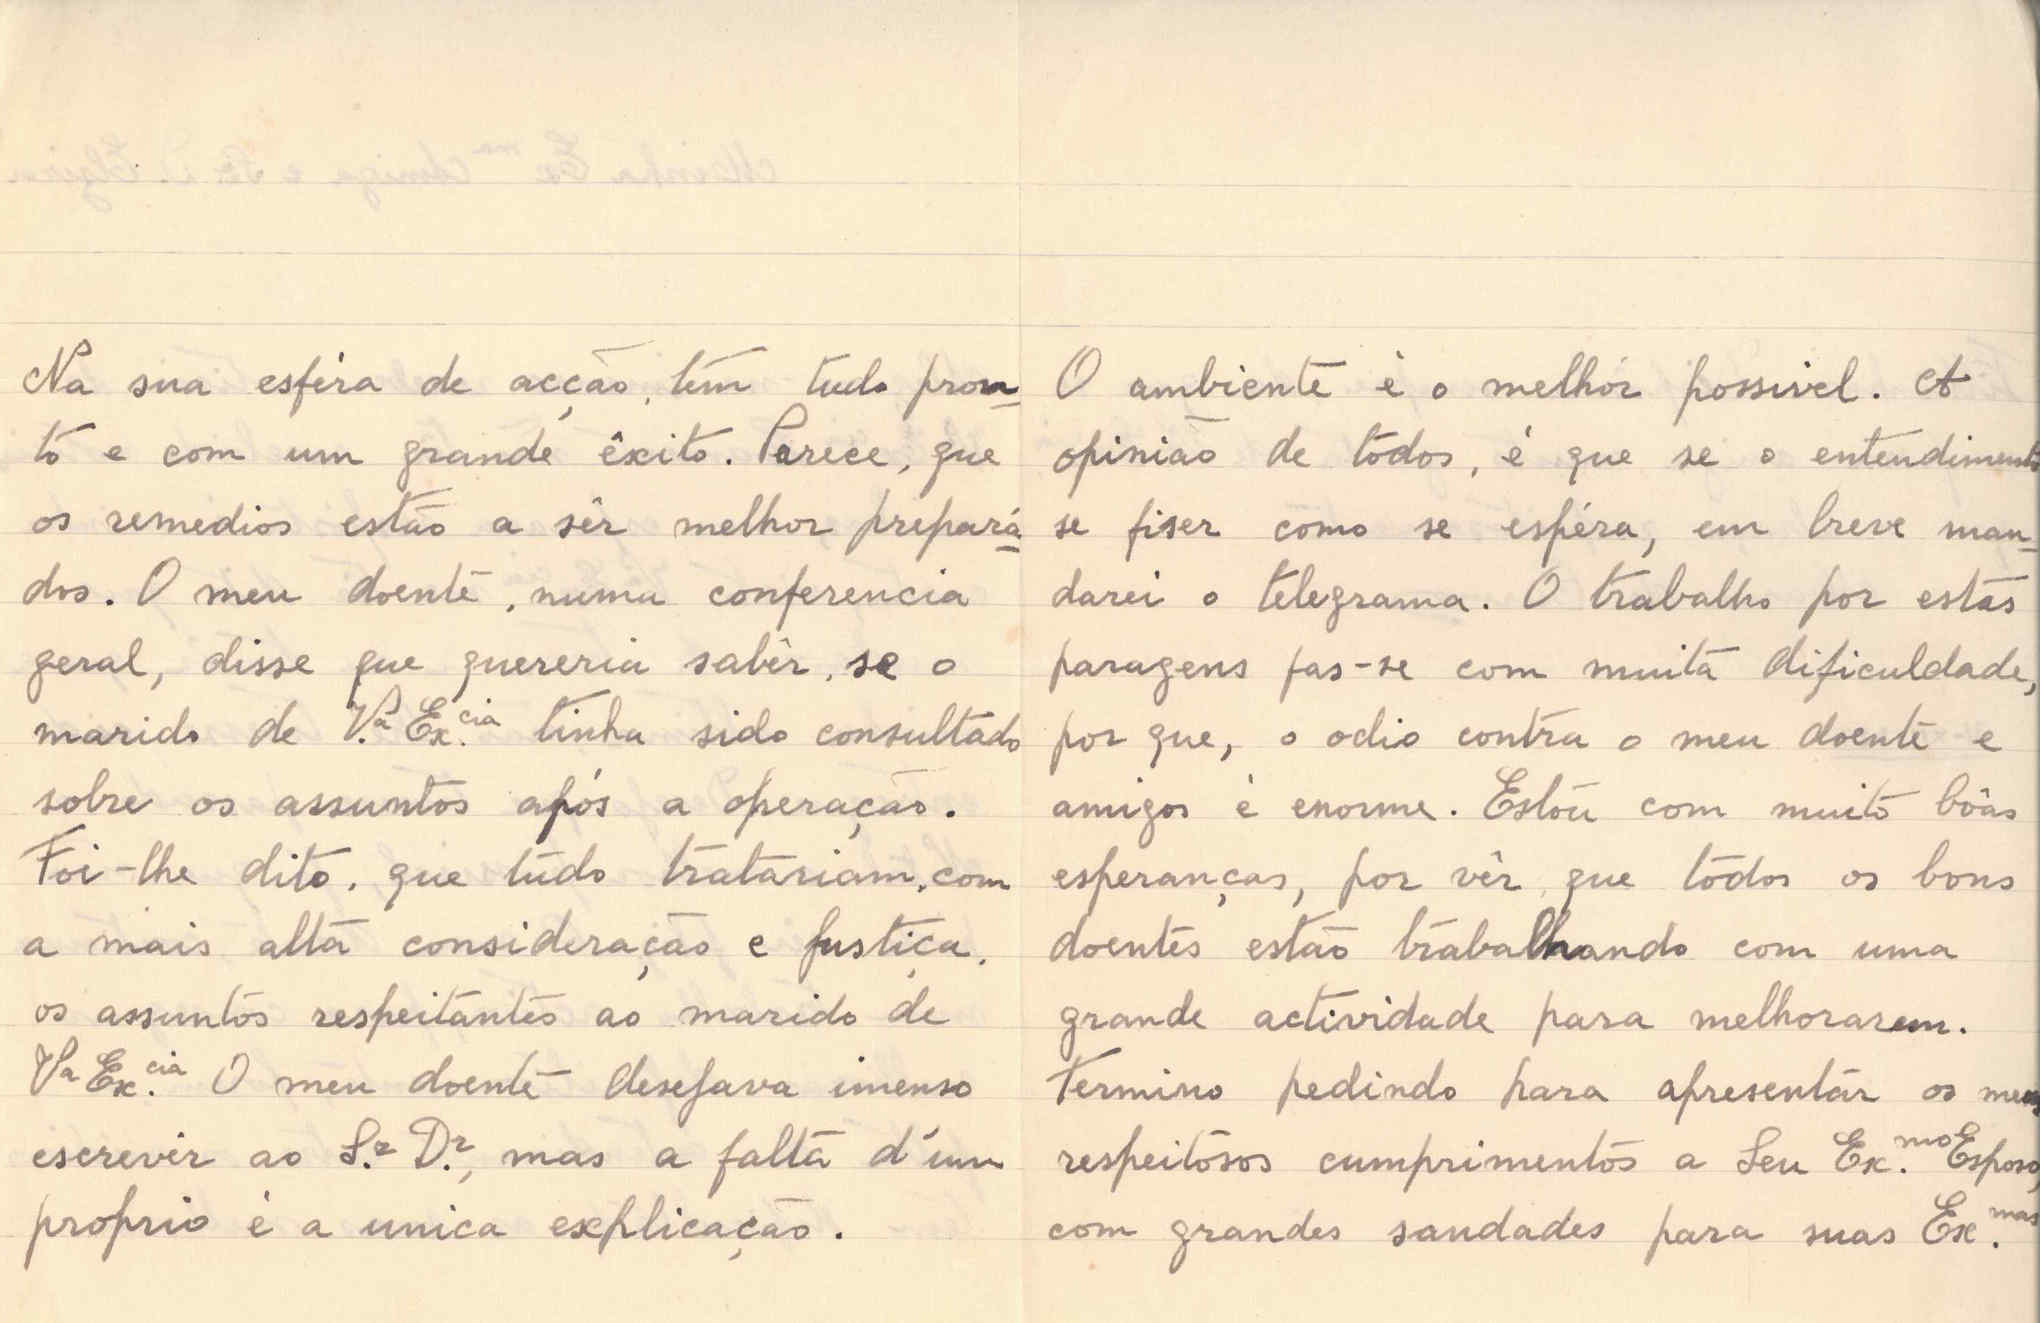 Na sua esféra de acção, têm tudo pron-
to e com um grande êxito. Parece, que
os remedios estão a sêr melhor prepará-
dos. O meu doente, numa conferencia
geral, disse que quereria sabêr, se o
marido de V.ª Ex.cia tinha sido consultado
sobre os assuntos após a operação.
Foi-lhe dito, que tudo tratariam, com
a mais alta consideração e justiça,
os assuntos respeitantes ao marido de
Vª Ex.cia O meu doente desejava imenso
escrevêr ao S.r D.r, mas a falta d'um
proprio é a unica explicação.
O ambiente é o melhór possivel. A
opinião de todos, é que se o entendimento
se fiser como se espéra, em breve man-
darei o telegrama. O trabalho por estas
paragens fas-se com muita dificuldade,
por que, o odio contra o meu doente e
amigos é enorme. Estou com muito bôas
esperanças, por vêr que todos os bons
doentes estão trabalhando com uma
grande actividade para melhorarem.
Termino pedindo para apresentár os meus
respeitosos cumprimentos a Seu Ex.mo Esposo,
com grandes saudades para suas Ex.mas